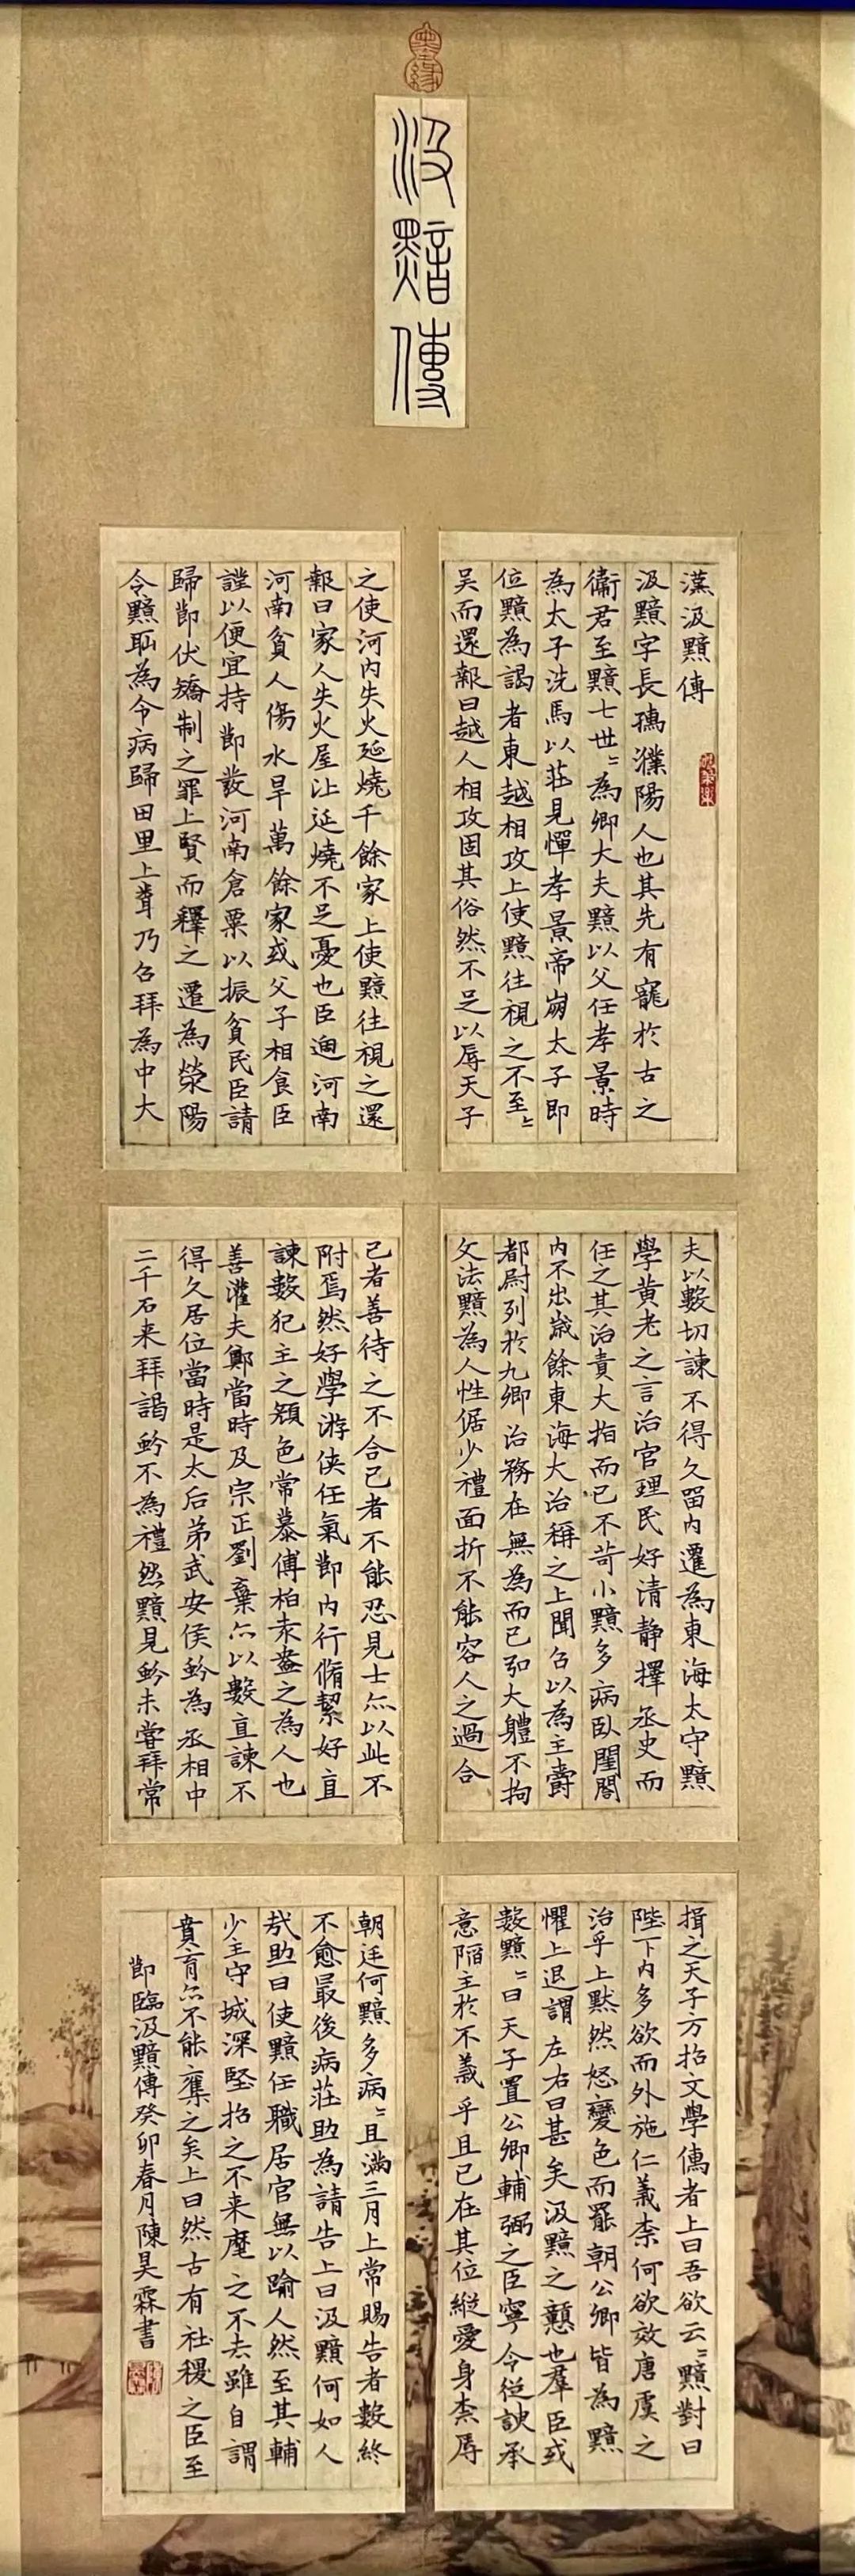 墨緣
汲黯傳
漢汲黯傳
汲黯字長孺濮陽人也其先有寵於古之
衛君至黯七世〻為卿大夫黯以父任孝景時
為太子洗馬以莊見憚孝景帝崩太子即
位黯為謁者東越相攻上使黯往視之不至〻
吳而還報曰越人相攻固其俗然不足以辱天子
之使河內失火延燒千餘家上使黯往視之還
報曰家人失火屋比延燒不足憂也臣過河南
河南貧人傷水旱萬餘家或父子相食臣
謹以便宜持節發河南倉粟以振貧民臣請
歸節伏矯制之罪上賢而釋之遷為滎陽
令黯恥為令病歸田里上聞乃召拜為中大
夫以數切諫不得久留內遷為東海太守黯
學黃老之言治官理民好清靜擇丞史而
任之其治責大指而已不苛小黯多病臥閨閤
內不出歲餘東海大治稱之上聞召以為主爵
都尉列於九卿治務在無為而已弘大體不拘
文法黯為人性倨少禮面折不能容人之過合
己者善待之不合己者不能忍見士亦以此不
附焉然好學游俠任氣節內行脩絜好直
諫數犯主之顏色常慕傅柏袁盎之為人也
善灌夫鄭當時及宗正劉棄亦以數直諫不
得久居位當時是太后弟武安侯蚡為丞相中
二千石来拜謁蚡不為禮然黯見蚡未嘗拜常
揖之天子方招文學儒者上曰吾欲云〻黯對曰
陛下內多欲而外施仁義柰何欲效唐虞之
治乎上默然怒變色而罷朝公卿皆為黯
懼上退謂左右曰甚矣汲黯之戇也羣臣或
數黯〻曰天子置公卿輔弼之臣寧令從諛承
意陷主於不義乎且已在其位縱愛身柰辱
朝廷何黯多病〻且滿三月上常賜告者數終
不愈最後病莊助為請告上曰汲黯何如人
哉助曰使黯任職居官無以踰人然至其輔
少主守城深堅招之不来麾之不去雖自謂
賁育亦不能奪之矣上曰然古有社稷之臣至
節臨汲黯傳癸卯春月陳昊霖書